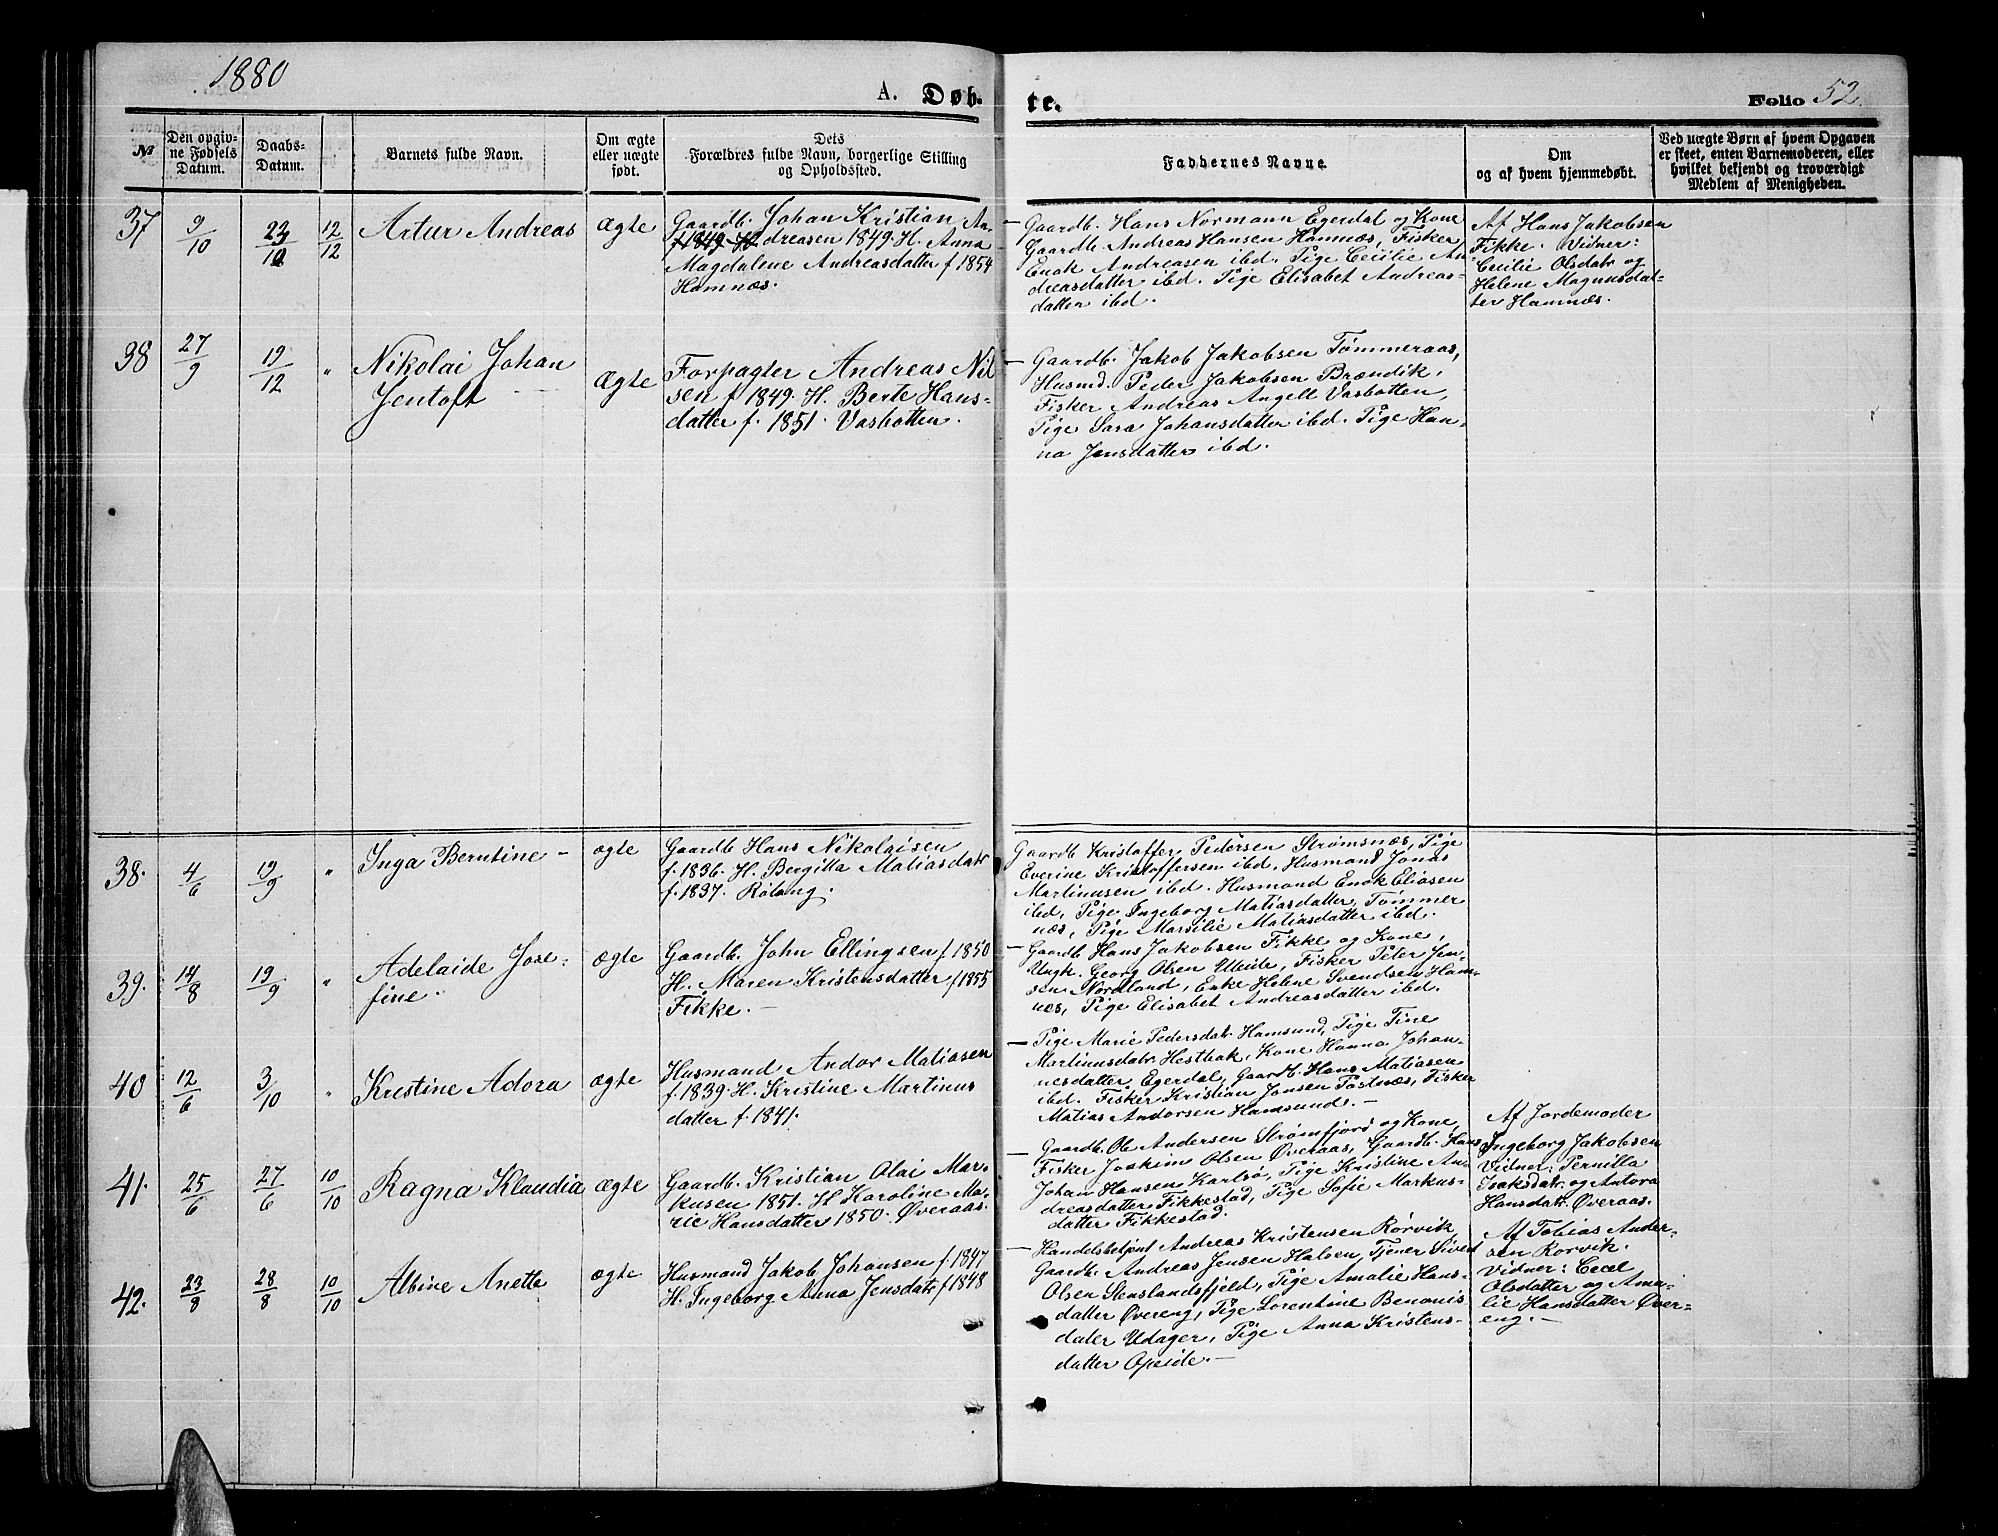 1880
A. Døb-
te.
Folio 52.
№
Den opgiv-
ne Fødsels
Datum.
Daabs-
Datum.
Barnets fulde Navn.
Om ægte
eller uægte
født.
Dets
Forældres fulde Navn, borgerlige Stilling
og Opholdssted.
Faddernes Navne.
Om
og af hvem hjemmedøbt.
Ved uægte Børn af hvem Opgaven
er skeet, enten Barnemoderen, eller
hvilket bekjendt og troværdigt
Medlem af Menigheden.
37
9/10
23/10
12/12
Artur Andreas
ægte
Gaardb. Johan Kristian An-
dreasen 1849. H. Anna
Magdalene Andreasdatter f 1854
Hamnæs.
– Gaardb. Hans Normann Egerdal og Kone
Gaardb. Andreas Hansen Hamnæs, Fisker
Enok Andreasen ibd. Pige Cecilie An-
dreasdatter ibd. Pige Elisabet Andreas-
datter ibd.
Af Hans Jakobsen
Fikke. Vidner:
Cecilie Olsdatr og
Helene Magnusdat-
ter Hamnæs.
38
27/9
19/12
"
Nikolai Johan
Jentoft –
ægte
Forpagter Andreas Nil
sen f 1849. H. Berte Hans-
datter f. 1851. Vasbotten.
– Gaardb. Jakob Jakobsen Tømmeraas,
Husmd. Peder Jakobsen Brændvik,
Fisker Andreas Angell Vasbotten,
Pige Sara Johansdatter ibd. Pige Han-
na Jensdatter ibd.
38.
4/6
19/9
"
Inga Berntine –
ægte
Gaardb Hans Nikolaisen
f. 1836. H. Bergitta Matiasdatr
f. 1837. Røtang.
Gaardb Kristoffer Pedersen Strømsnæs, Pige
Everine Kristoffersen ibd, Husmand Jonas
Martinusen ibd. Husmand Enok Eliasen
ibd, Pige Ingeborg Matiasdatter, Tømmer
næs, Pige Marsilie Matiasdatter ibd.
39.
14/8
19/9
"
Adelaide Jose-
fine.
ægte
Gaardb. John Ellingsen f. 1850
H. Maren Kristensdatter f 1855
Fikke. –
– Gaardb Hans Jakobsen Fikke og Kone,
Ungk. Georg Olsen Uleide, Fisker Peter Jen-
sen Nordland, Enke Helene Svendsen Ham-
næs, Pige Elisabet Andreasdatter ibd.
40
12/6
3/10
"
Kristine Adora
ægte
Husmand Andor Matiasen
f. 1839. H. Kristine Martinus
datter f. 1841.
– Pige Marie Pedersdatr Hamsund, Pige Tine
Martinusdatr Hestbak, Kone Hanna Johan-
nesdatter Egerdal, Gaardb. Hans Matiasen
ibd. Fisker Kristian Jonsen Fastnæs, Fisker
Matias Andorsen Hamsund. –
41.
25/6
27/6
10/10
Ragna Klaudia
ægte
Gaardb. Kristian Olai Mar-
kusen 1851. H Karoline Ma-
rie Hansdatter 1850. Øveraas.
– Gaardb. Ole Andersen Strømfjord og Kone,
Fisker Joakim Olsen Øveraas, Gaardb. Hans
Johan Hansen Karlsø, Pige Kristine An-
dreasdatter Fikkestad, Pige Sofie Markus-
datter Fikkestad.
Af Jordemoder
Ingeborg Jakobsen
Vidner: Pernilla
Isaksdatr og Antora
Hansdatr Øveraas.
42.
23/8
28/8
10/10
Albine Anetta
ægte
Husmand Jakob Johansen f. 1847
H. Ingeborg Anna Jensdatr f 1848
– Handelsbetjent Andreas Kristensen Rørvik
Gaardb. Andreas Jensen Halsen, Tjener Sivert
Olsen Stenslandsfjeld, Pige Amalie Hans-
datter Øvereng, Pige Lorentine Benonis
dater Udager, Pige Anna Kristens-
datter Opeide. –
Af Tobias Ander-
sen Rørvik.
Vidner: Cecel
Olsdatter og Ama-
lie Hansdatter Øver-
eng. –